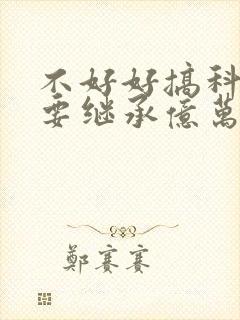 不好好搞科
要继承億萬
鄭賽賽